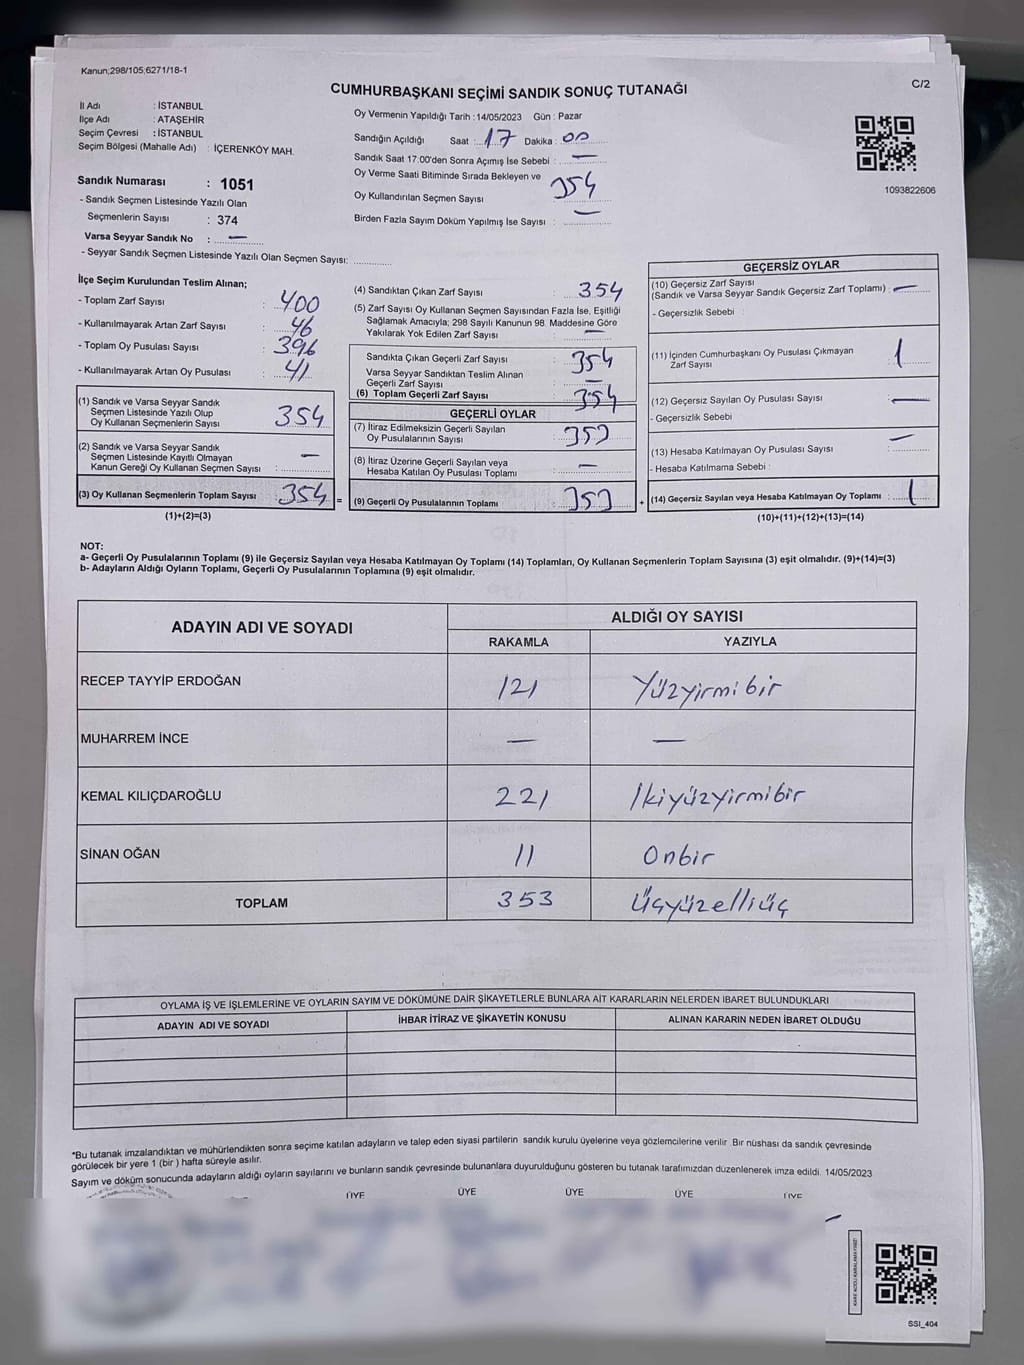 Kanun;298/105;6271/18-1
C/2
CUMHURBAŞKANI SEÇİMİ SANDIK SONUÇ TUTANAĞI
İl Adı : İSTANBUL
İlçe Adı : ATAŞEHİR
Seçim Çevresi : İSTANBUL
Seçim Bölgesi (Mahalle Adı) : İÇERENKÖY MAH.
Sandık Numarası : 1051
- Sandık Seçmen Listesinde Yazılı Olan
Seçmenlerin Sayısı : 374
Varsa Seyyar Sandık No : —
- Seyyar Sandık Seçmen Listesinde Yazılı Olan Seçmen Sayısı:
Oy Vermenin Yapıldığı Tarih : 14/05/2023 Gün : Pazar
Sandığın Açıldığı Saat : 17 Dakika : 00
Sandık Saat 17:00'den Sonra Açımış İse Sebebi : —
Oy Verme Saati Bitiminde Sırada Bekleyen ve
Oy Kullandırılan Seçmen Sayısı 354
Birden Fazla Sayım Döküm Yapılmış İse Sayısı : —
1093822606
İlçe Seçim Kurulundan Teslim Alınan;
- Toplam Zarf Sayısı : 400
- Kullanılmayarak Artan Zarf Sayısı : 46
- Toplam Oy Pusulası Sayısı : 396
- Kullanılmayarak Artan Oy Pusulası : 41
(1) Sandık ve Varsa Seyyar Sandık
Seçmen Listesinde Yazılı Olup
Oy Kullanan Seçmenlerin Sayısı : 354
(2) Sandık ve Varsa Seyyar Sandık
Seçmen Listesinde Kayıtlı Olmayan
Kanun Gereği Oy Kullanan Seçmen Sayısı : —
(3) Oy Kullanan Seçmenlerin Toplam Sayısı : 354 =
(1)+(2)=(3)
(4) Sandıktan Çıkan Zarf Sayısı : 354
(5) Zarf Sayısı Oy Kullanan Seçmen Sayısından Fazla İse, Eşitliği
Sağlamak Amacıyla; 298 Sayılı Kanunun 98. Maddesine Göre
Yakılarak Yok Edilen Zarf Sayısı : —
Sandıkta Çıkan Geçerli Zarf Sayısı : 354
Varsa Seyyar Sandıktan Teslim Alınan
Geçerli Zarf Sayısı : —
(6) Toplam Geçerli Zarf Sayısı : 354
GEÇERLİ OYLAR
(7) İtiraz Edilmeksizin Geçerli Sayılan
Oy Pusulalarının Sayısı : 353
(8) İtiraz Üzerine Geçerli Sayılan veya
Hesaba Katılan Oy Pusulası Toplamı : —
(9) Geçerli Oy Pusulalarının Toplamı : 353 +
GEÇERSİZ OYLAR
(10) Geçersiz Zarf Sayısı
(Sandık ve Varsa Seyyar Sandık Geçersiz Zarf Toplamı) : —
- Geçersizlik Sebebi :
(11) İçinden Cumhurbaşkanı Oy Pusulası Çıkmayan
Zarf Sayısı : 1
(12) Geçersiz Sayılan Oy Pusulası Sayısı : —
- Geçersizlik Sebebi :
(13) Hesaba Katılmayan Oy Pusulası Sayısı : —
- Hesaba Katılmama Sebebi :
(14) Geçersiz Sayılan veya Hesaba Katılmayan Oy Toplamı : 1
(10)+(11)+(12)+(13)=(14)
NOT:
a- Geçerli Oy Pusulalarının Toplamı (9) ile Geçersiz Sayılan veya Hesaba Katılmayan Oy Toplamı (14) Toplamları, Oy Kullanan Seçmenlerin Toplam Sayısına (3) eşit olmalıdır. (9)+(14)=(3)
b- Adayların Aldığı Oyların Toplamı, Geçerli Oy Pusulalarının Toplamına (9) eşit olmalıdır.
ADAYIN ADI VE SOYADI
ALDIĞI OY SAYISI
RAKAMLA YAZIYLA
RECEP TAYYİP ERDOĞAN 121 Yüzyirmibir
MUHARREM İNCE — —
KEMAL KILIÇDAROĞLU 221 İkiyüzyirmibir
SİNAN OĞAN 11 Onbir
TOPLAM 353 Üçyüzelliüç
OYLAMA İŞ VE İŞLEMLERİNE VE OYLARIN SAYIM VE DÖKÜMÜNE DAİR ŞİKAYETLERLE BUNLARA AİT KARARLARIN NELERDEN İBARET BULUNDUKLARI
ADAYIN ADI VE SOYADI İHBAR İTİRAZ VE ŞİKAYETİN KONUSU ALINAN KARARIN NEDEN İBARET OLDUĞU
*Bu tutanak imzalandıktan ve mühürlendikten sonra seçime katılan adayların ve talep eden siyasi partilerin sandık kurulu üyelerine veya gözlemcilerine verilir .Bir nüshası da sandık çevresinde
görülecek bir yere 1 (bir ) hafta süreyle asılır.
Sayım ve döküm sonucunda adayların aldığı oyların sayılarını ve bunların sandık çevresinde bulunanlara duyurulduğunu gösteren bu tutanak tarafımızdan düzenlenerek imza edildi. 14/05/2023
ÜYE ÜYE ÜYE ÜYE ÜYE
KARE KODU KARALAMAYINIZ!
SSI_404